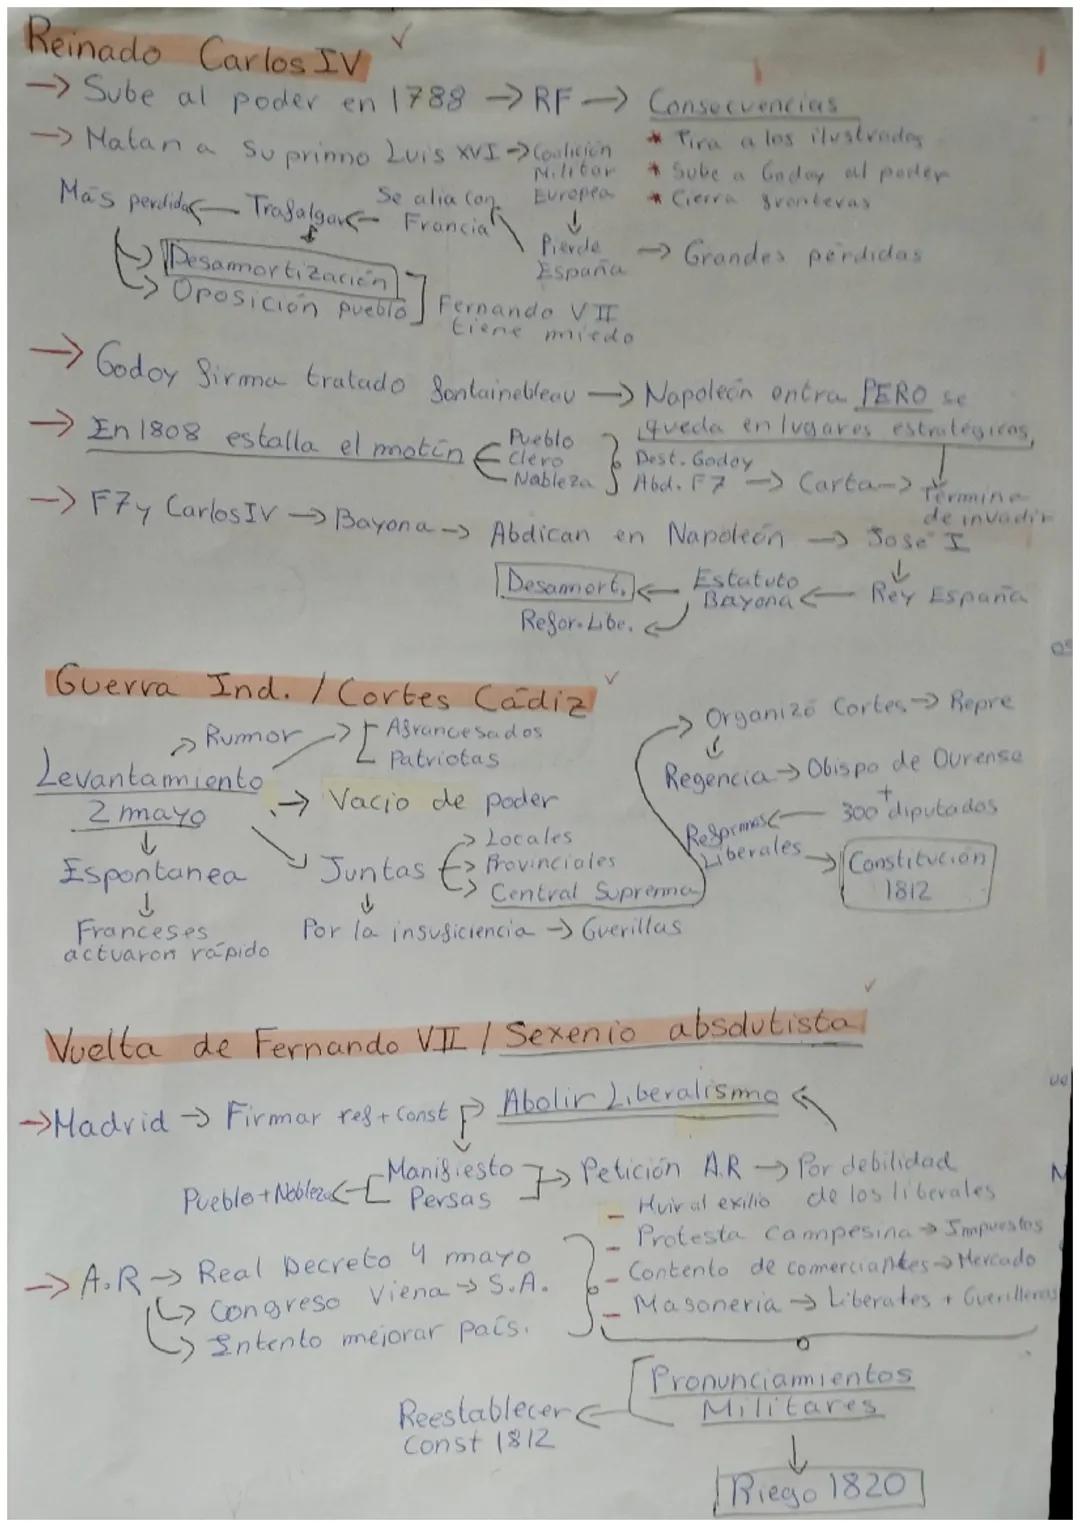 Reinado Carlos IV ✓
→ Sube al poder en 1788 → RF → Consecuencias
* Tira a los ilustrados
* Sube a Godoy al poder
* Cierra fronteras
→ Matan a su primo Luis XVI → Coalición Militar Europea
↓
Pierde España → Grandes pérdidas
Se alia con Francia
Más perdidas ← Trafalgar ←
Desamortización
Oposición pueblo
Fernando VII tiene miedo
→ Godoy firma tratado Fontainebleau → Napoleón entra PERO se
queda en lugares estratégicos,
→ En 1808 estalla el motín
Pueblo
Clero
Nobleza
Dest. Godoy
Abd. F7 → Carta → Termina
de invadir
→ F7 y Carlos IV → Bayona → Abdican en Napoleón → Jose I
↓
Desamort. ← Estatuto Bayona ← Rey España
Refor. Libe. ←
Guerra Ind. / Cortes Cádiz ✓
Levantamiento
2 mayo
→ Rumor
→ Afrancesados
Patriotas
→ Vacio de poder
↓
Espontanea
↓
Franceses
actuaron rápido
Juntas
→ Locales
→ Provinciales
→ Central Suprema
↓
Por la insuficiencia → Guerillas
→ Organizó Cortes → Repre
↓
Regencia → Obispo de Ourense
+
300 diputados
Reformas Liberales ←
→ Constitución
1812
Vuelta de Fernando VII / Sexenio absolutista ✓
→ Madrid → Firmar ref + Const → Abolir Liberalismo
Pueblo + Nobleza ← Manifiesto Persas → Petición A.R → Por debilidad
de los liberales
- Huir al exilio
- Protesta campesina → Impuestos
- Contento de comerciantes → Mercado
- Masoneria → Liberales + Guerilleros
→ A.R → Real Decreto 4 mayo
→ Congreso Viena → S.A.
→ Intento mejorar país.
Pronunciamientos
Militares
Reestablecer ←
Const 1812
↓
Riego 1820